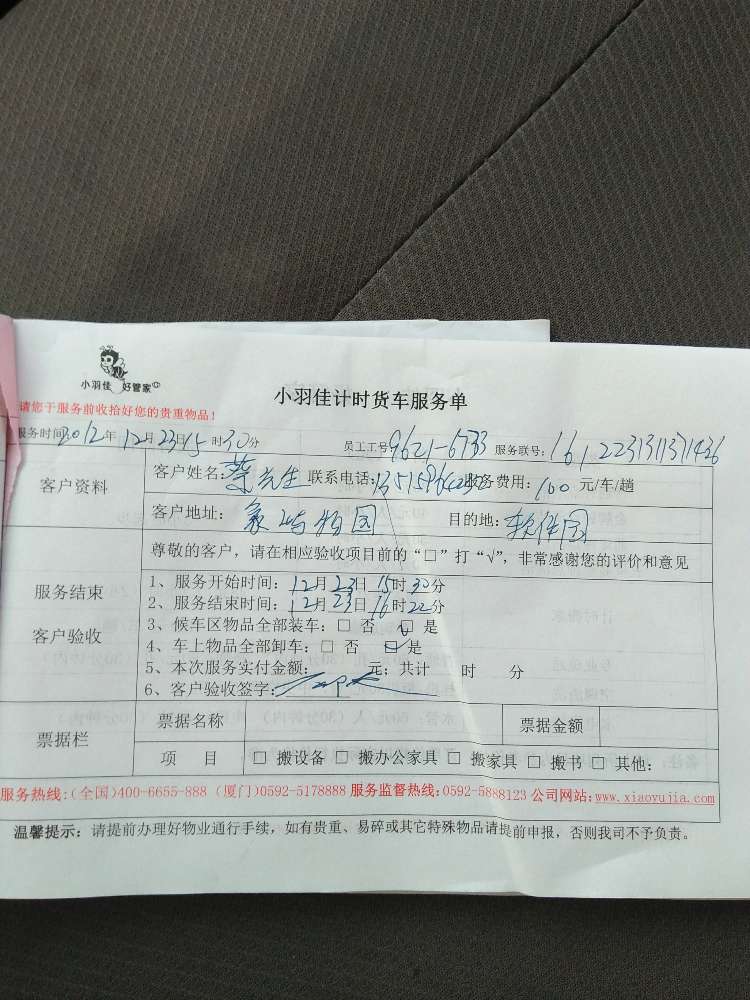 小羽佳 好管家
小羽佳计时货车服务单
请您于服务前收拾好您的贵重物品！
服务时间:2012年12月23日15时30分 员工工号:9621-6733 服务联号:
客户资料
客户姓名: 联系电话: 服务费用:100元/车/趟
客户地址:象屿 目的地:软件园
尊敬的客户，请在相应验收项目前的“□”打“√”，非常感谢您的评价和意见
服务结束
客户验收
1、服务开始时间:12月23日15时30分
2、服务结束时间:12月23日16时22分
3、候车区物品全部装车: □ 否 □ 是
4、车上物品全部卸车: □ 否 □ 是
5、本次服务实付金额: 元; 共计 时 分
6、客户验收签字:
票据栏
票据名称 票据金额
项 目 □ 搬设备 □ 搬办公家具 □ 搬家具 □ 搬书 □ 其他:
服务热线:(全国)400-6655-888 (厦门)0592-5178888 服务监督热线:0592-5888123 公司网站:www.xiaoyujia.com
温馨提示: 请提前办理好物业通行手续，如有贵重、易碎或其它特殊物品请提前申报，否则我司不予负责。